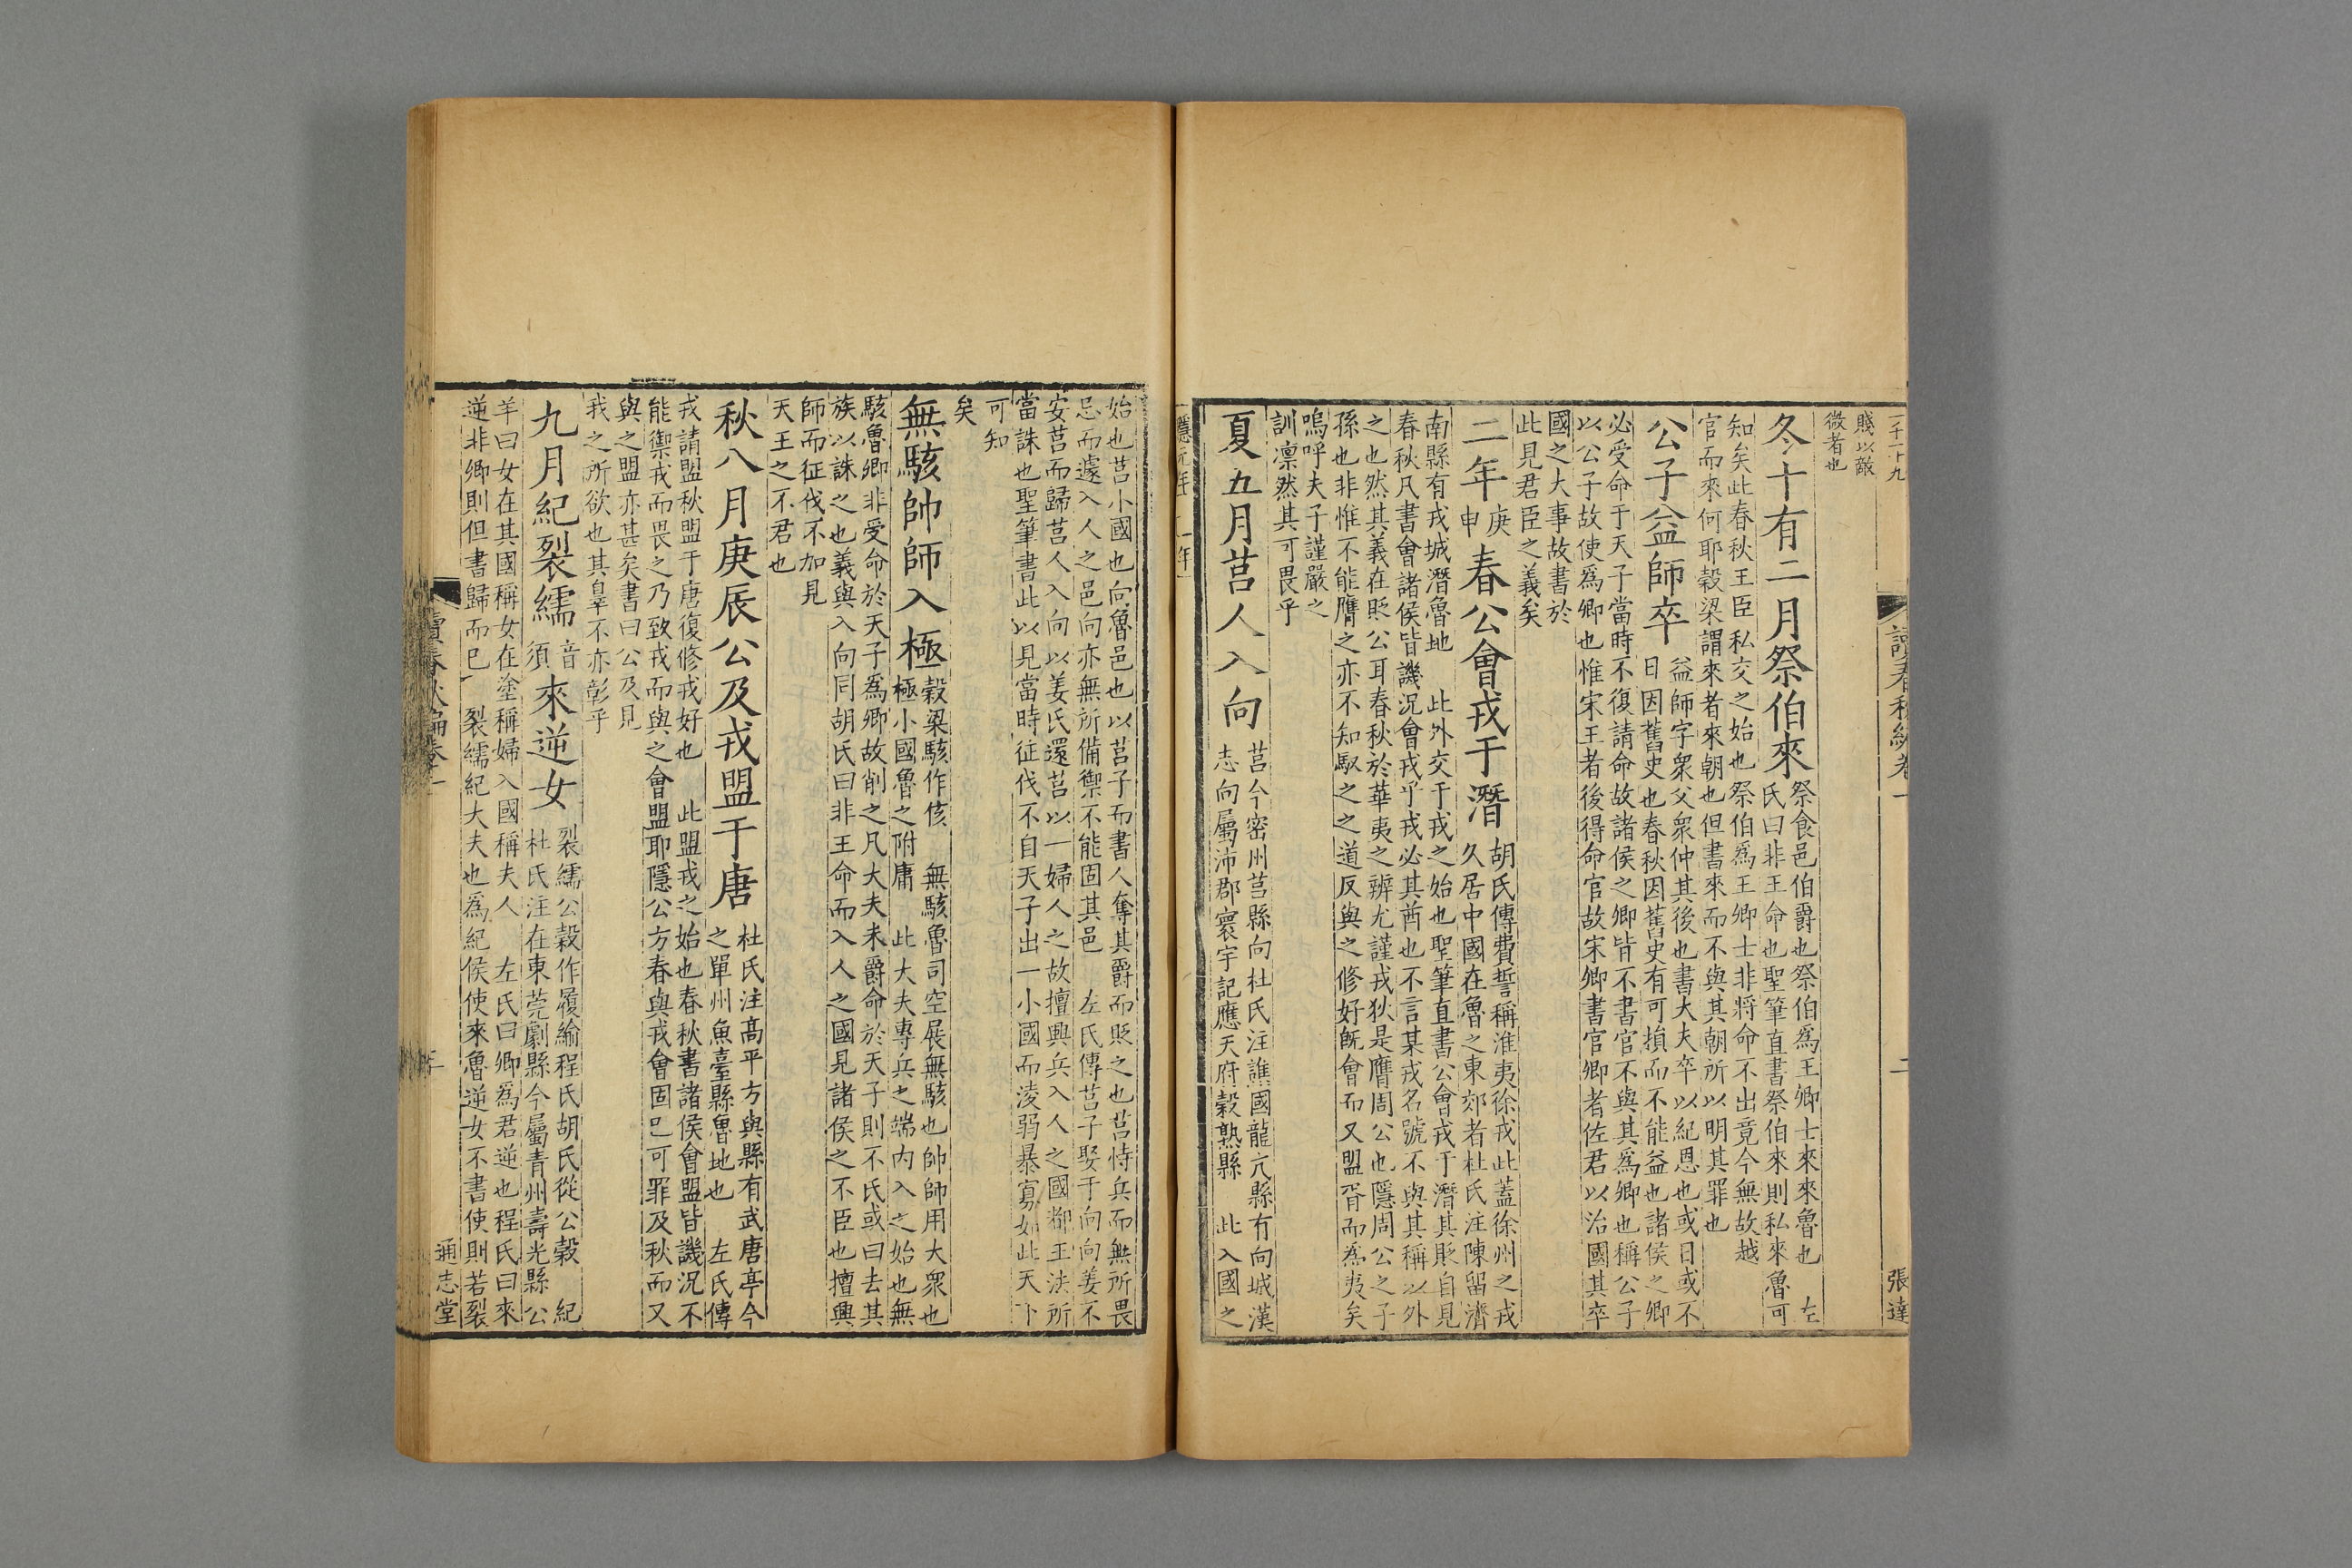 二千十九
讀春秋編卷一
二
張達
賤以敵
微者也
冬十有二月祭伯來
祭食邑伯爵也祭伯爲王卿士來來魯也 左
氏曰非王命也聖筆直書祭伯來則私來魯可
知矣此春秋王臣私交之始也祭伯爲王卿士非將命不出竟今無故越
官而來何耶穀梁謂來者來朝也但書來而不與其朝所以明其罪也
公子益師卒
益師字衆父衆仲其後也書大夫卒以紀恩也或日或不
日因舊史也春秋因舊史有可損而不能益也諸侯之卿
必受命于天子當時不復請命故諸侯之卿皆不書官不與其爲卿也稱公子
以公子故使爲卿也惟宋王者後得命官故宋卿書官卿者佐君以治國其卒
國之大事故書於
此見君臣之義矣
二年庚申春公會戎于潛
胡氏傳費誓稱淮夷徐戎此蓋徐州之戎
久居中國在魯之東郊者杜氏注陳留濟
南縣有戎城潛魯地 此外交于戎之始也聖筆直書公會戎于潛其貶自見
春秋凡書會諸侯皆譏況會戎乎戎必其酋也不言某戎名號不與其稱以外
之也然其義在貶公耳春秋於華夷之辨尤謹戎狄是膺周公也隱周公之子
孫也非惟不能膺之亦不知馭之之道反與之修好旣會而又盟胥而爲夷矣
嗚呼夫子謹嚴之
訓凜然其可畏乎
夏五月莒人入向
莒今密州莒縣向杜氏注譙國龍亢縣有向城漢
志向屬沛郡寰宇記應天府穀熟縣 此入國之
隱元年 二年
始也莒小國也向魯邑也以莒子而書人奪其爵而貶之也莒恃兵而無所畏
忌而遽入人之邑向亦無所備禦不能固其邑 左氏傳莒子娶于向向姜不
安莒而歸莒人入向以姜氏還莒以一婦人之故擅興兵入人之國揆王法所
當誅也聖筆書此以見當時征伐不自天子出一小國而淩弱暴寡如此天下
可知
矣
無駭帥師入極
穀梁駭作侅 無駭魯司空展無駭也帥師用大衆也
極小國魯之附庸 此大夫專兵之端内入之始也無
駭魯卿非受命於天子爲卿故削之凡大夫未爵命於天子則不氏或曰去其
族以誅之也義與入向同胡氏曰非王命而入人之國見諸侯之不臣也擅興
師而征伐不加見
天王之不君也
秋八月庚辰公及戎盟于唐
杜氏注高平方與縣有武唐亭今
之單州魚臺縣魯地也 左氏傳
戎請盟秋盟于唐復修戎好也 此盟戎之始也春秋書諸侯會盟皆譏況不
能禦戎而畏之乃致戎而與之會盟耶隱公方春與戎會固已可罪及秋而又
與之盟亦甚矣書曰公及見
我之所欲也其辠不亦彰乎
九月紀裂繻音須來逆女
裂繻公穀作履緰程氏胡氏從公穀 紀
杜氏注在東莞劇縣今屬青州壽光縣 公
羊曰女在其國稱女在塗稱婦入國稱夫人 左氏曰卿爲君逆也程氏曰來
逆非卿則但書歸而已 裂繻紀大夫也爲紀侯使來魯逆女不書使則若裂
讀春秋編卷一
通志堂